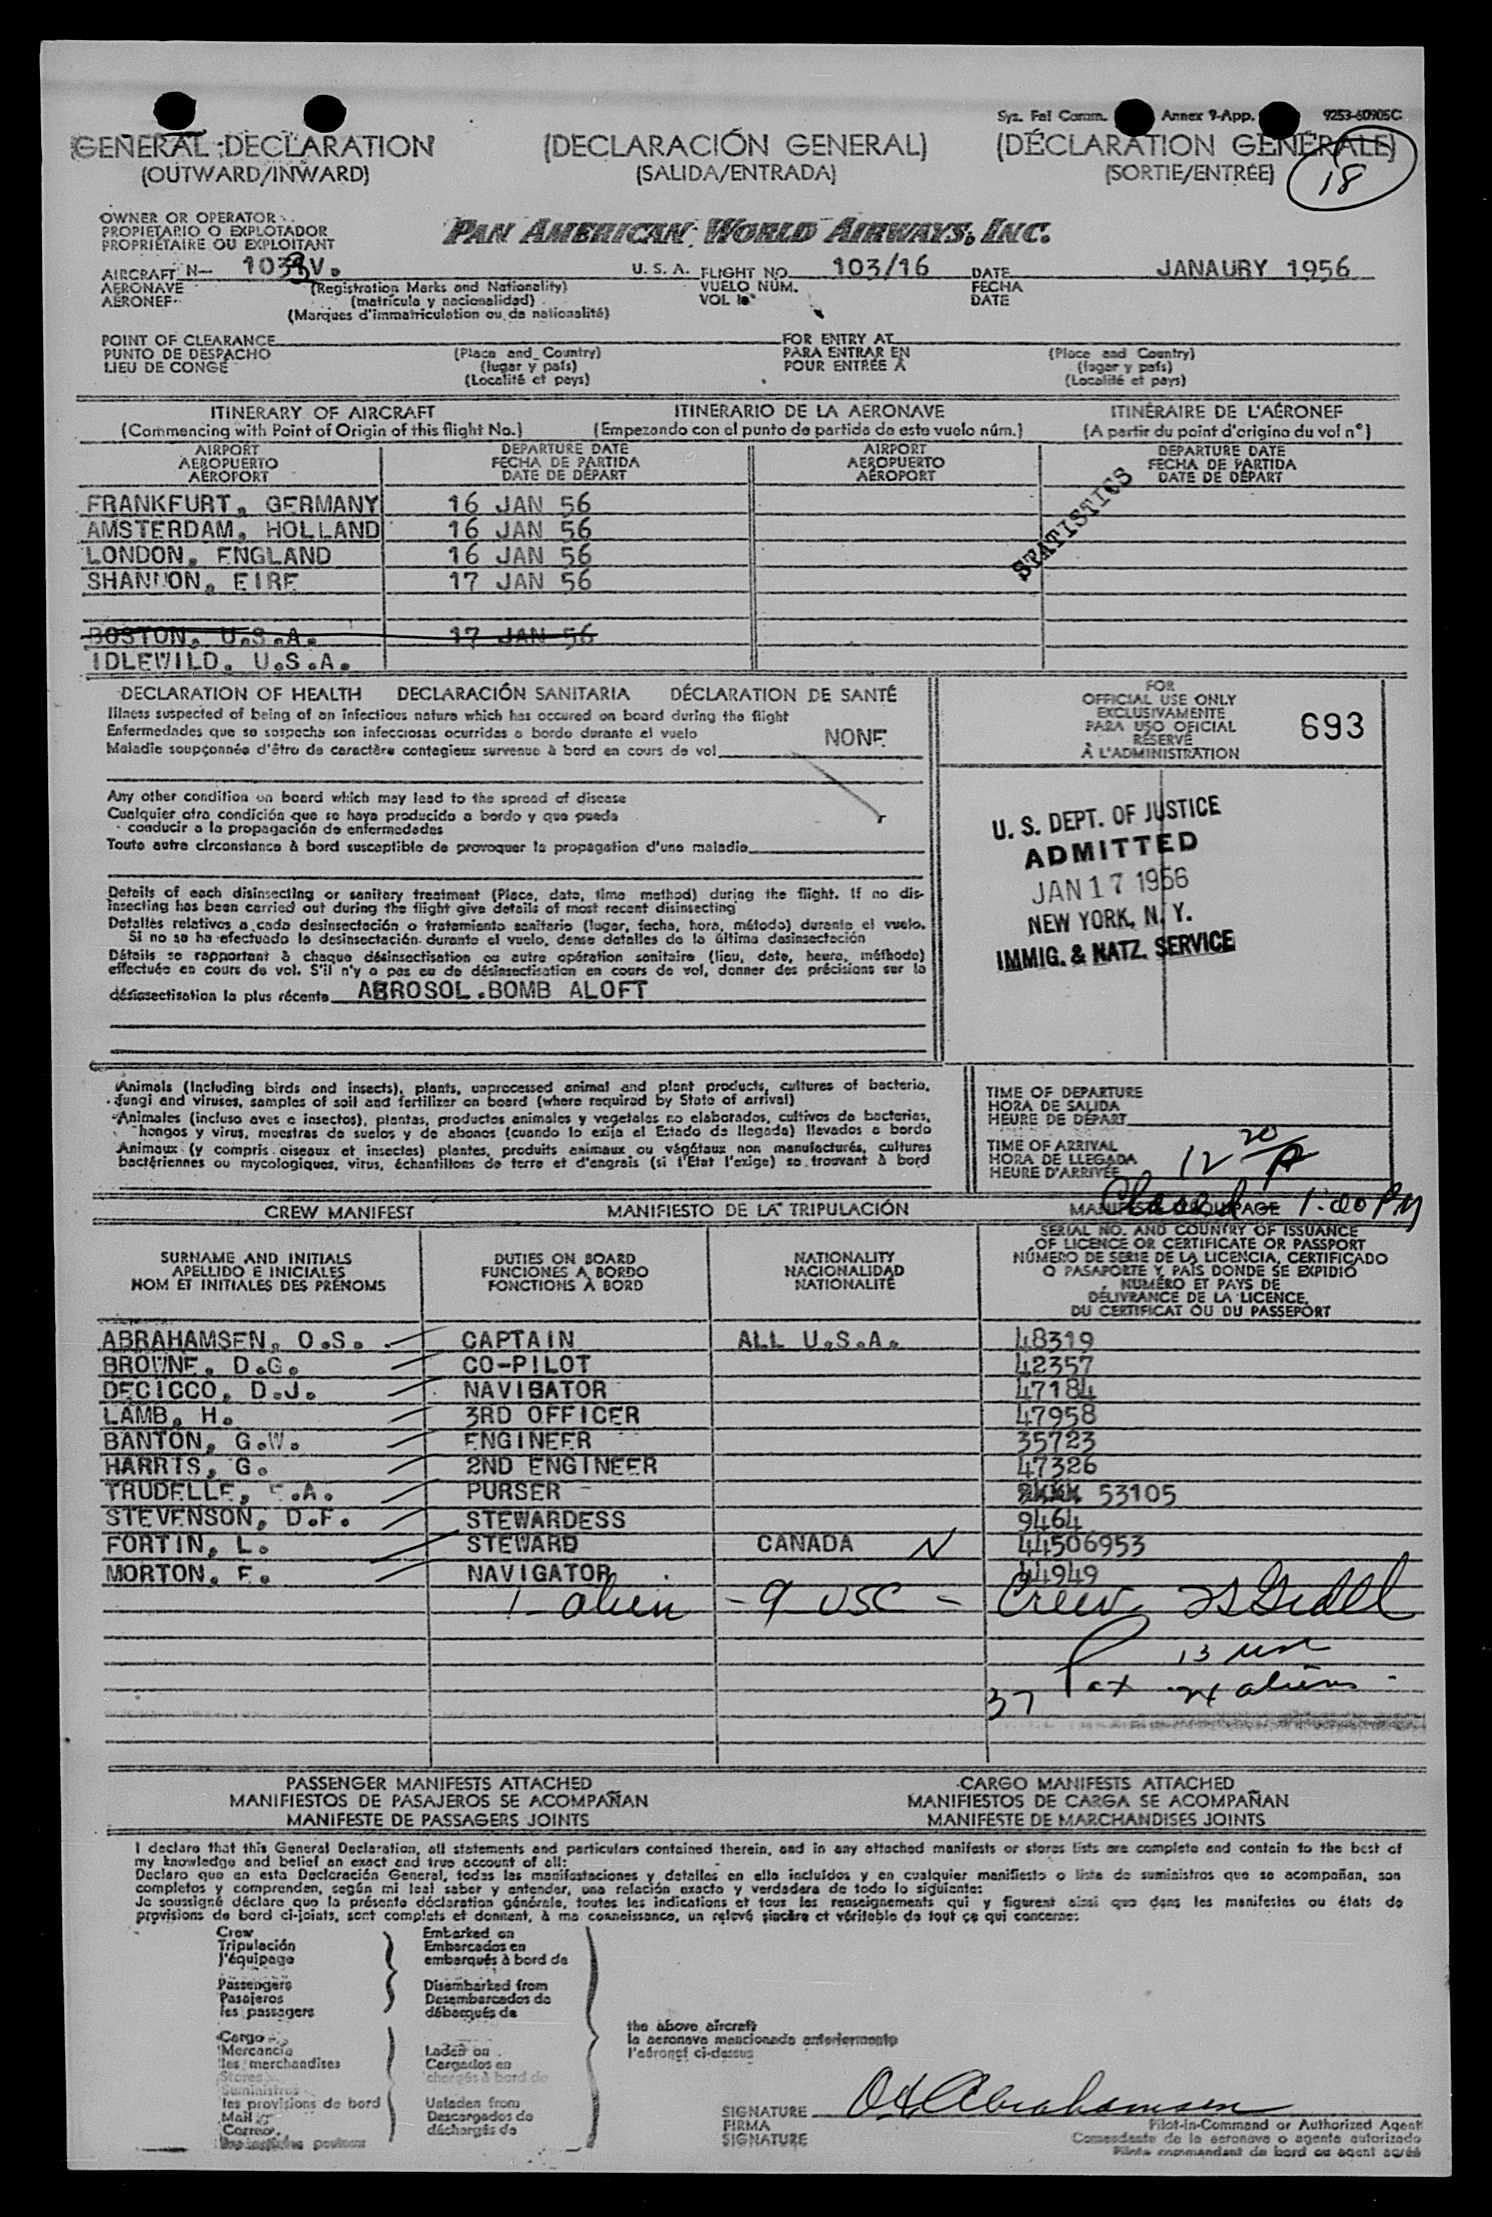 Sys. Fal Comm. Annex 9-App. 9253-60905C
GENERAL DECLARATION (DECLARACIÓN GENERAL) (DÉCLARATION GÉNÉRALE)
(OUTWARD/INWARD) (SALIDA/ENTRADA) (SORTIE/ENTRÉE) 18
OWNER OR OPERATOR
PROPIETARIO O EXPLOTADOR
PROPRIÉTAIRE OU EXPLOITANT
PAN AMERICAN WORLD AIRWAYS, INC.
AIRCRAFT N- 1033V. U. S. A. FLIGHT NO. 103/16 DATE JANAURY 1956
AERONAVE (Registration Marks and Nationality) VUELO NÚM. FECHA
AÉRONEF (matrícula y nacionalidad) VOL DATE
(Marques d'immatriculation ou de nationalité)
POINT OF CLEARANCE FOR ENTRY AT
PUNTO DE DESPACHO (Place and Country) PARA ENTRAR EN (Place and Country)
LIEU DE CONGÉ (lugar y país) POUR ENTRÉE À (lugar y país)
(Localité et pays) (Localité et pays)
ITINERARY OF AIRCRAFT ITINERARIO DE LA AERONAVE ITINÉRAIRE DE L'AÉRONEF
(Commencing with Point of Origin of this flight No.) (Empezando con el punto de partida de este vuelo núm.) (A partir du point d'origine du vol n°)
AIRPORT DEPARTURE DATE AIRPORT DEPARTURE DATE
AEROPUERTO FECHA DE PARTIDA AEROPUERTO FECHA DE PARTIDA
AÉROPORT DATE DE DÉPART AÉROPORT DATE DE DÉPART
STATISTICS
FRANKFURT, GERMANY 16 JAN 56
AMSTERDAM, HOLLAND 16 JAN 56
LONDON, ENGLAND 16 JAN 56
SHANNON, EIRE 17 JAN 56
BOSTON, U.S.A. 17 JAN 56
IDLEWILD, U.S.A.
DECLARATION OF HEALTH DECLARACIÓN SANITARIA DÉCLARATION DE SANTÉ
Illness suspected of being of an infectious nature which has occured on board during the flight
Enfermedades que se sospecha son infecciosas ocurridas a bordo durante el vuelo
Maladie soupçonnée d'être de caractère contagieux survenue à bord en cours de vol NONE
FOR
OFFICIAL USE ONLY
EXCLUSIVAMENTE
PARA USO OFICIAL
RÉSERVÉ
À L'ADMINISTRATION
693
Any other condition on board which may lead to the spread of disease
Cualquier otra condición que se haya producido a bordo y que pueda
conducir a la propagación de enfermedades
Toute autre circonstance à bord susceptible de provoquer la propagation d'une maladie
U. S. DEPT. OF JUSTICE
ADMITTED
JAN 17 1956
NEW YORK, N. Y.
IMMIG. & NATZ. SERVICE
Details of each disinsecting or sanitary treatment (Place, date, time method) during the flight. If no dis-
insecting has been carried out during the flight give details of most recent disinsecting
Detalles relativos a cada desinsectación o tratamiento sanitario (lugar, fecha, hora, método) durante el vuelo.
Si no se ha efectuado la desinsectación durante el vuelo, dense detalles de la última desinsectación
Détails se rapportant à chaque désinsectisation ou autre opération sanitaire (lieu, date, heure, méthode)
effectuée en cours de vol. S'il n'y a pas eu de désinsectisation en cours de vol, donner des précisions sur la
désinsectisation la plus récente AEROSOL BOMB ALOFT
Animals (Including birds and insects), plants, unprocessed animal and plant products, cultures of bacteria,
fungi and viruses, samples of soil and fertilizer on board (where required by State of arrival)
Animales (incluso aves e insectos), plantas, productos animales y vegetales no elaborados, cultivos de bacterias,
hongos y virus, muestras de suelos y de abonos (cuando lo exija el Estado de llegada) llevados a bordo
Animaux (y compris oiseaux et insectes) plantes, produits animaux ou végétaux non manufacturés, cultures
bactériennes ou mycologiques, virus, échantillons de terre et d'engrais (si l'État l'exige) se trouvant à bord
TIME OF DEPARTURE
HORA DE SALIDA
HEURE DE DÉPART
TIME OF ARRIVAL
HORA DE LLEGADA
HEURE D'ARRIVÉE
12 20 P
Cleared 1:00 PM
CREW MANIFEST MANIFIESTO DE LA TRIPULACIÓN
SURNAME AND INITIALS
APELLIDO E INICIALES
NOM ET INITIALES DES PRÉNOMS
DUTIES ON BOARD
FUNCIONES A BORDO
FONCTIONS À BORD
NATIONALITY
NACIONALIDAD
NATIONALITÉ
SERIAL NO. AND COUNTRY OF ISSUANCE
OF LICENCE OR CERTIFICATE OR PASSPORT
NÚMERO DE SERIE DE LA LICENCIA, CERTIFICADO
O PASAPORTE Y PAÍS DONDE SE EXPIDIÓ
NUMÉRO ET PAYS DE
DÉLIVRANCE DE LA LICENCE,
DU CERTIFICAT OU DU PASSEPORT
ABRAHAMSEN, O.S. CAPTAIN ALL U.S.A. 48319
BROWNE, D.G. CO-PILOT 42357
DECICCO, D.J. NAVIGATOR 47184
LAMB, H. 3RD OFFICER 47958
BANTON, G.W. ENGINEER 35723
HARRIS, G. 2ND ENGINEER 47326
TRUDELLE, .A. PURSER 53105
STEVENSON, D.F. STEWARDESS 9464
FORTIN, L. STEWARD CANADA N 44506953
MORTON, F. NAVIGATOR 44949
1 alien - 9 USC - Crew
13 usc
37 Pax 24 aliens
PASSENGER MANIFESTS ATTACHED CARGO MANIFESTS ATTACHED
MANIFIESTOS DE PASAJEROS SE ACOMPAÑAN MANIFIESTOS DE CARGA SE ACOMPAÑAN
MANIFESTE DE PASSAGERS JOINTS MANIFESTE DE MARCHANDISES JOINTS
I declare that this General Declaration, all statements and particulars contained therein, and in any attached manifests or stores lists are complete and contain to the best of
my knowledge and belief an exact and true account of all:
Declaro que en esta Declaración General, todas las manifestaciones y detalles en ella incluidos y en cualquier manifiesto o lista de suministros que se acompañan, son
completos y comprenden, según mi leal saber y entender, una relación exacta y verdadera de todo lo siguiente:
Je soussigné déclare que la présente déclaration générale, toutes les indications et tous les renseignements qui y figurent ainsi que dans les manifestes ou états de
provisions de bord ci-joints, sont complets et donnent, à ma connaissance, un relevé sincère et véritable de tout ce qui concerne:
Crew Embarked on
Tripulación Embarcados en
l'équipage embarqués à bord de
Passengers Disembarked from
Pasajeros Desembarcados de
les passagers débarqués de
the above aircraft
la aeronave mencionada anteriormente
l'aéronef ci-dessus
Cargo
Mercancía Laden on
les merchandises Cargados en
Stores chargés à bord de
Suministros
les provisions de bord Unladen from
Mail Descargados de
Correo déchargés de
SIGNATURE O S Abrahamsen
FIRMA Pilot-in-Command or Authorized Agent
SIGNATURE Comandante de la aeronave o agente autorizado
Pilote commandant de bord ou agent agréé